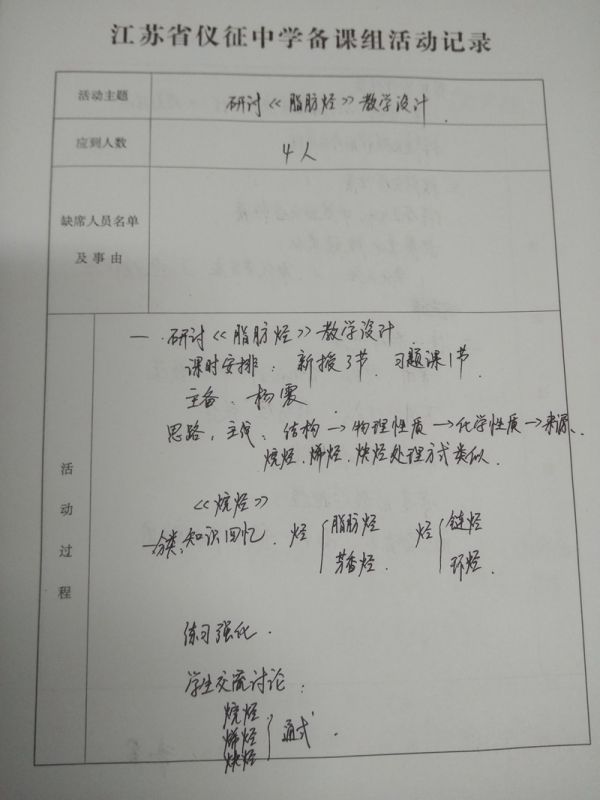 江苏省仪征中学备课组活动记录
活动主题 研讨《脂肪烃》教学设计.
应到人数 4人
缺席人员名单
及事由
活动过程
一. 研讨《脂肪烃》教学设计
课时安排: 新授3节、习题课1节.
主备: 杨震
思路, 主线: 结构→物理性质→化学性质→来源、
烷烃、烯烃、炔烃处理方式类似.
《烷烃》
一分类、知识回忆. 烃 脂肪烃 芳香烃. 烃 链烃 环烃.
练习强化.
学生交流讨论:
烷烃
烯烃 通式.
炔烃